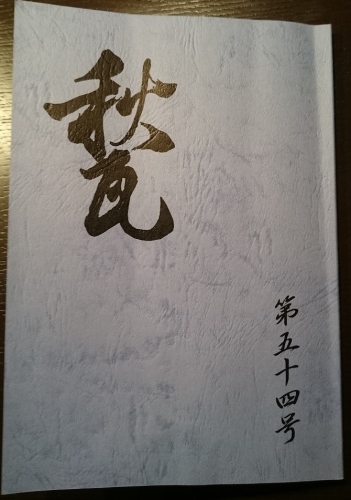 秋瓦
第五十四号